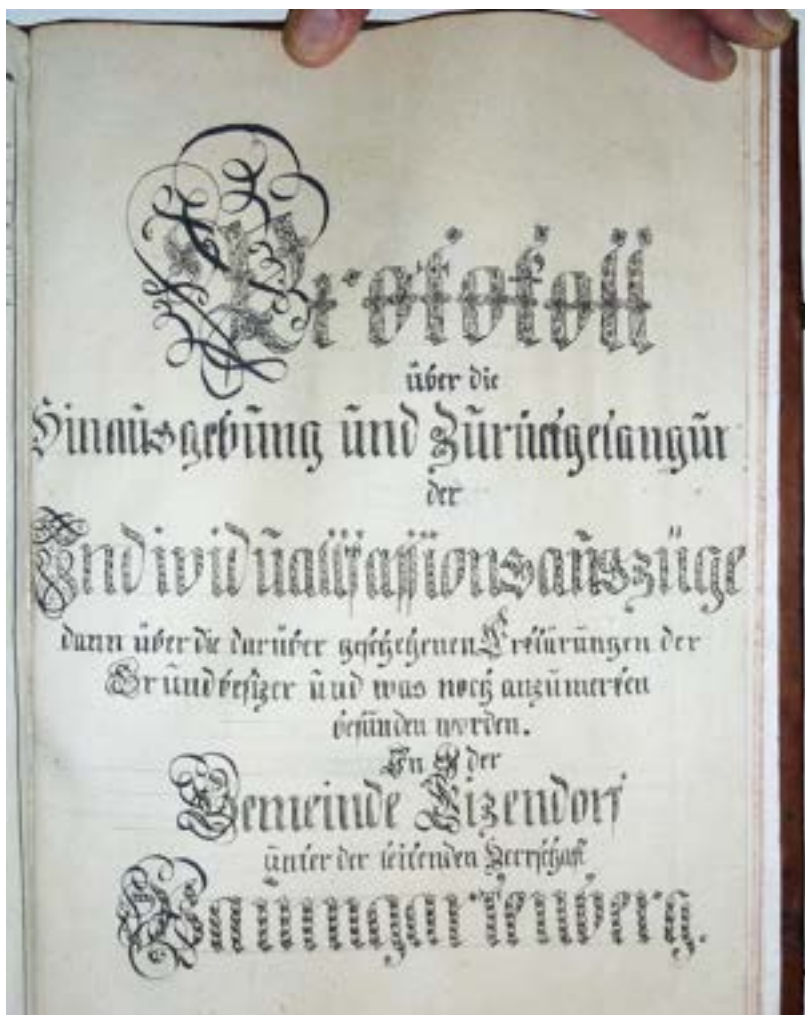 Protokoll
über die
Hinausgebung und Zurückgelangung
der
Individualfassionsauszüge
dann über die darüber geschehenen Erklärungen der
Grundbesizer und was noch anzumerken
befunden worden.
In der
Gemeinde Pizendorf
unter der leitenden Herrschaft
Baumgartenberg.